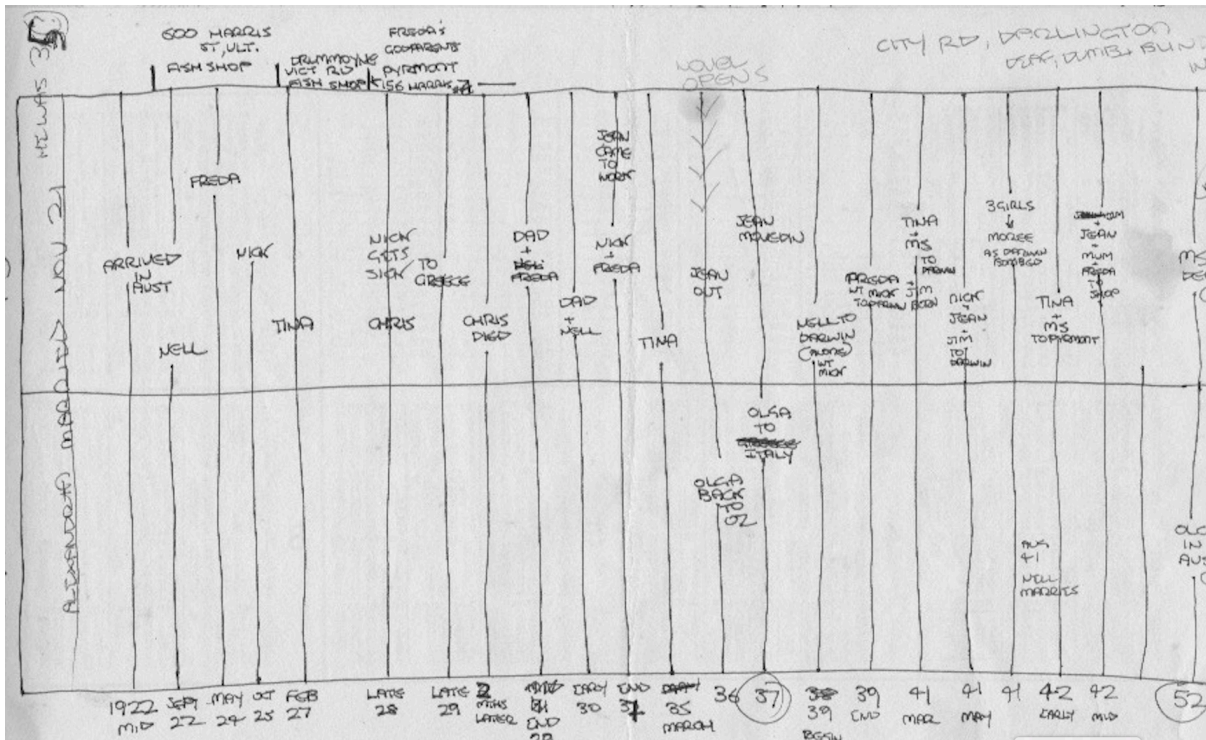 600 HARRIS
ST, ULT.
FISH SHOP
DRUMMOYNE
VICT RD
FISH SHOP
FREDA'S
GODPARENTS
PYRMONT
156 HARRIS
NOVEL
OPENS
CITY RD, DARLINGTON
DEAF, DUMB + BLIND
IN
HE WAS 35
ALEXANDRA MARRIED NOV 21
ARRIVED
IN
AUST
NELL
FREDA
NICK
TINA
NICK
GETS
SICK
CHRIS
TO
GREECE
CHRIS
DIED
DAD
+
FREDA
DAD
+
NELL
JEAN
CAME
TO
WORK
NICK
+
FREDA
TINA
JEAN
OUT
JEAN
MOVED IN
NELL TO
DARWIN
(ALONE)
WT
MICK
FREDA
WT MICK
TO DARWIN
TINA
+
MS
TO
DARWIN
+
JIM
BORN
NICK
JEAN
JIM
TO
DARWIN
3 GIRLS
MOREE
AS DARWIN
BOMBED
TINA
+
MS
TO PYRMONT
+
JEAN
+
MUM
FREDA
TO
SHOP
MS
OLGA
TO
ITALY
OLGA
BACK
TO
OZ
AUG
41
NELL
MARRIES
OLG
IN
AUS
1922
MID
SEPT
22
MAY
24
OCT
25
FEB
27
LATE
28
LATE
29
2
MTHS
LATER
END
EARLY
30
END
35
MARCH
36
37
39
BEGIN
39
END
41
MAR
41
MAY
41
42
EARLY
42
MID
52